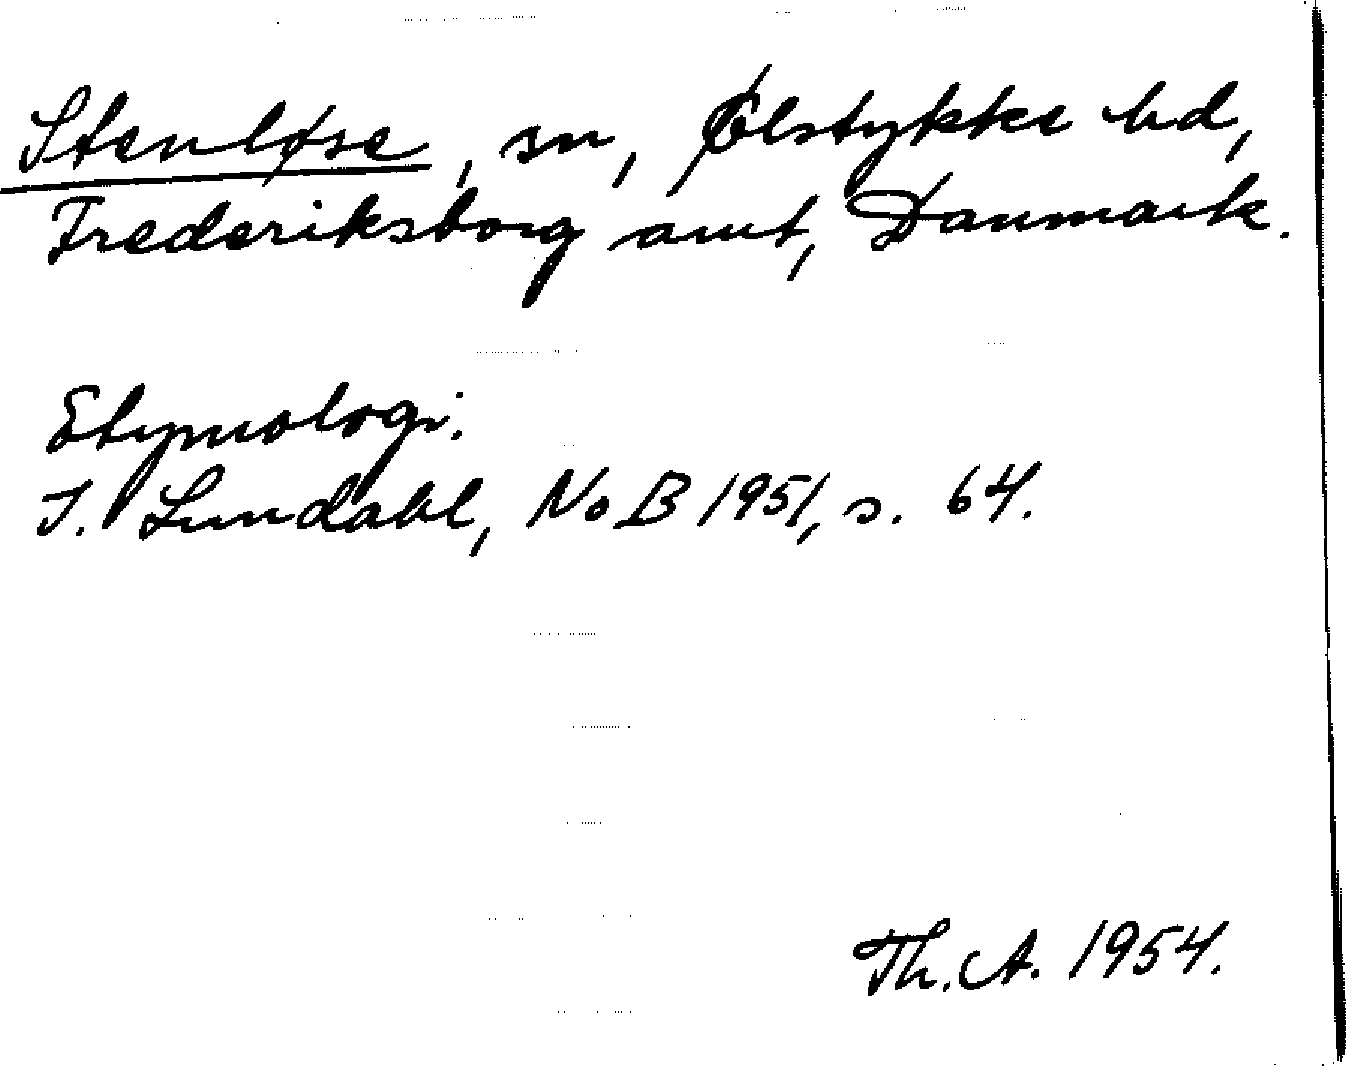 Stenløse, sn, Ølstykke hd,
Frederiksborg amt, Danmark.
Etymologi.
I. Lundahl, NoB 1951, s. 64.
Th. A. 1954.